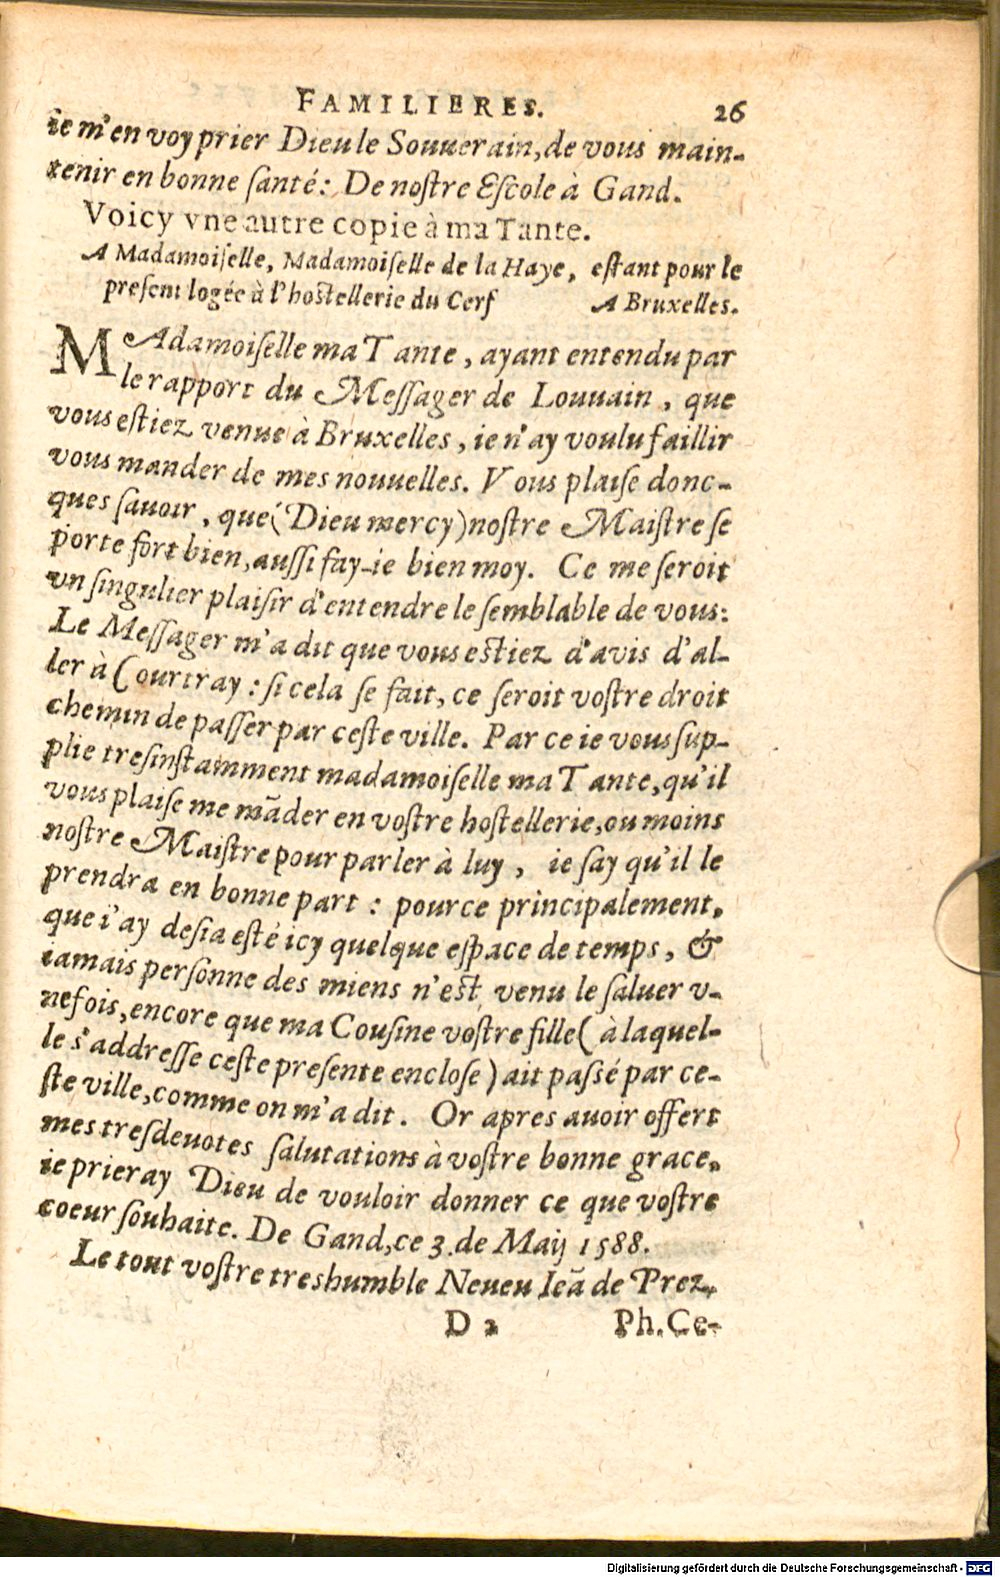 FAMILIERES. 26
ie m'en voy prier Dieu le Souuerain, de vous main-
tenir en bonne ſanté: De noſtre Eſcole à Gand.
Voicy vne autre copie à ma Tante.
A Madamoiſelle, Madamoiſelle de la Haye, eſtant pour le
preſent logée à l'hostellerie du Cerf A Bruxelles.
MAdamoiſelle ma Tante, ayant entendu par
le rapport du Meſſager de Louuain, que
vous eſtiez venue à Bruxelles, ie n'ay voulu faillir
vous mander de mes nouuelles. Vous plaiſe donc-
ques ſauoir, que (Dieu mercy) noſtre Maiſtre ſe
porte fort bien, auſſi fay-ie bien moy. Ce me ſeroit
vn ſingulier plaiſir d'entendre le ſemblable de vous:
Le Meſſager m'a dit que vous estiez d'avis d'al-
ler à Courtray: ſi cela ſe fait, ce ſeroit voſtre droit
chemin de paſſer par ceſte ville. Par ce ie vous ſup-
plie tresinſtamment madamoiſelle ma Tante, qu'il
vous plaiſe me mãder en voſtre hoſtellerie, ou moins
noſtre Maiſtre pour parler à luy, ie ſay qu'il le
prendra en bonne part: pource principalement,
que i'ay deſia eſté icy quelque eſpace de temps, &
iamais perſonne des miens n'est venu le ſaluer v-
nefois, encore que ma Couſine voſtre fille (à laquel-
le s'addreſſe ceſte preſente encloſe) ait paſſé par ce-
ſte ville, comme on m'a dit. Or apres auoir offert
mes treſdeuotes ſalutations à voſtre bonne grace,
ie prieray Dieu de vouloir donner ce que voſtre
coeur ſouhaite. De Gand, ce 3. de Maij 1588.
Le tout voſtre treshumble Neueu Ieã de Prez,
D 2 Ph. Ce-
Digitalisierung gefördert durch die Deutsche Forschungsgemeinschaft - DFG